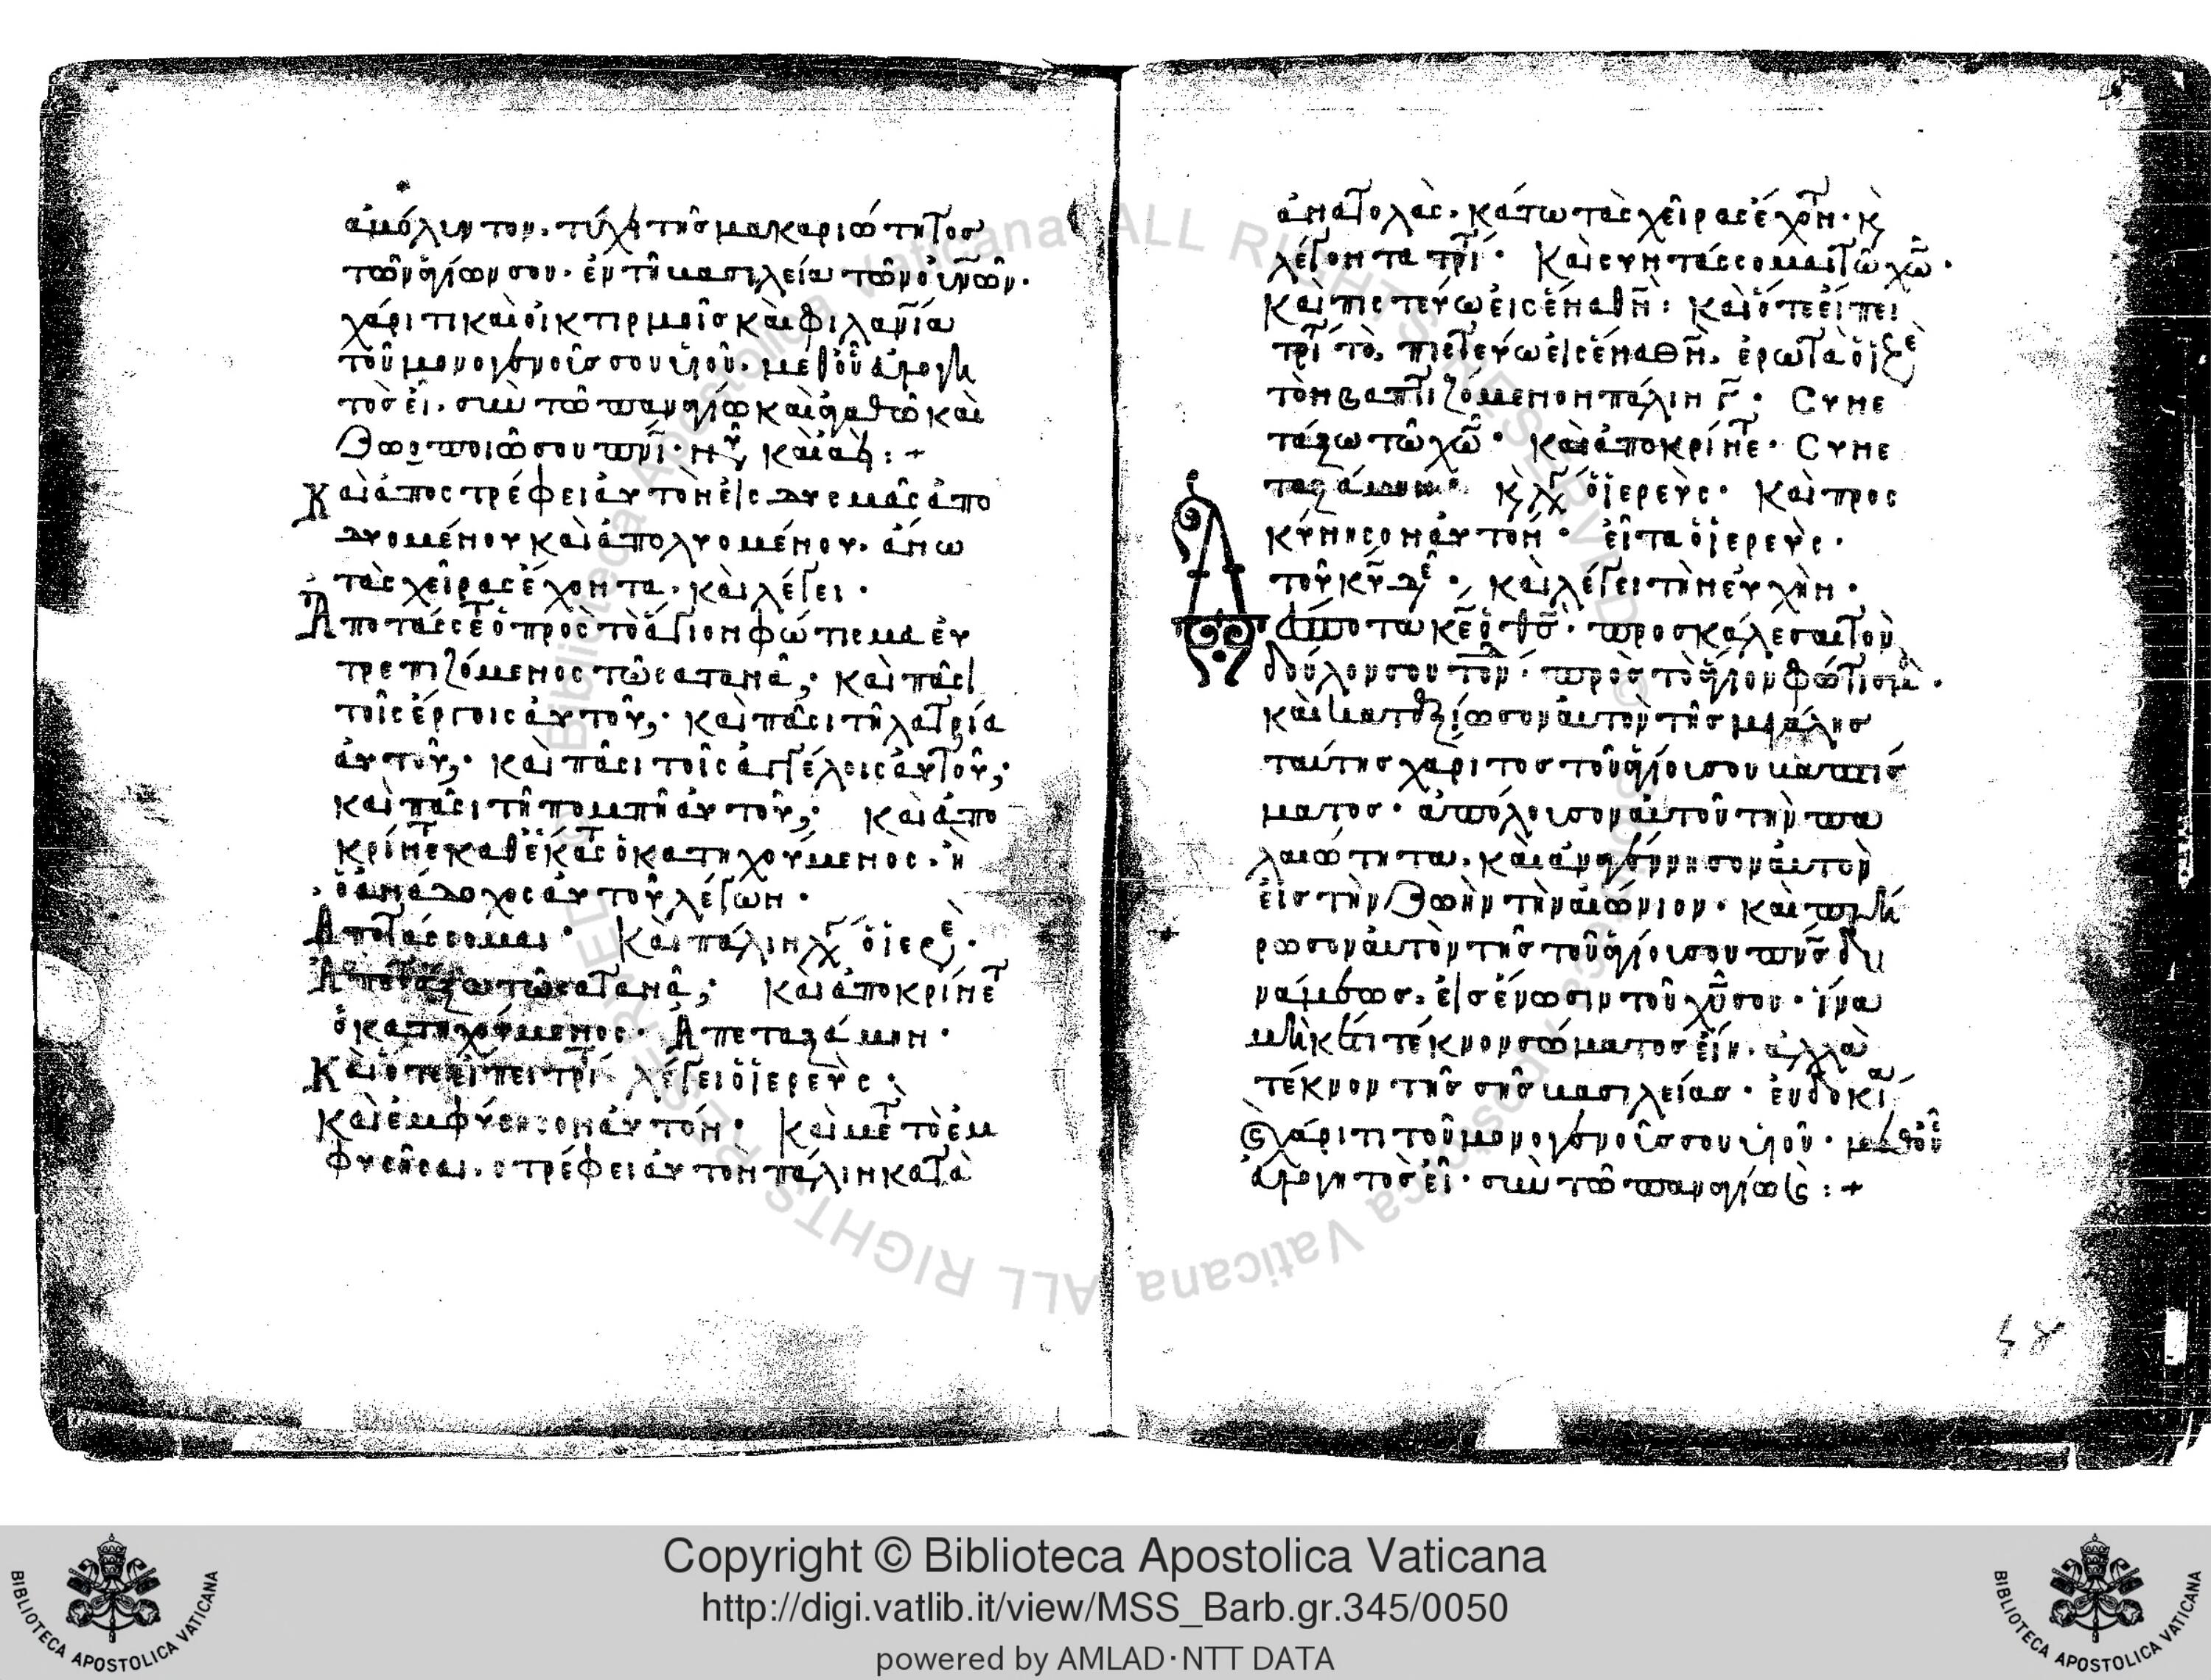 ἀμόλυντον. τύχη τῆς μακαριότητος
τῶν ἁγίων σου. ἐν τῇ βασιλεία τῶν οὐνῶν.
χάριτι καὶ οἰκτιρμοῖς καὶ φιλανία
τοῦ μονογενοῦς σου υἱοῦ. μεθοὗ εὐλογη
τὸς εἶ. σὺν τῶ παναγίω καὶ ἀγαθῶ καὶ
ζωοποιῶ σου πνι· νῦν καὶ ἀεὶ :+
Καὶ ἀποστρέφει ἀυτὸν εἰς δυσμὰς ἀπο
δυομένου καὶ ἀπολυομένου. ἄνω
τὰς χεῖρας ἔχοντα. καὶ λέγει.
Ἀποτάσσετ ὁ πρὸς τὸ ἅγιον φώτισμα ἐυ
τρεπιζόμενος τῶ σατανᾶ; καὶ πᾶσι
τοῖς ἔργοις ἀυτοῦ; καὶ πάσι τῆ λατρία
ἀυτοῦ; καὶ πᾶσι τοῖς ἀγγέλοις ἀυτοῦ;
καὶ πάσι τῆ πομπῆ ἀυτοῦ; καὶ ἀπο
κρίνετ καθ ἕκαστ ὁ κατηχούμενος. ἢ
ὁ ἀνάδοχος ἀυτοῦ λέγων.
Ἀποτάσσομαι· Καὶ πάλιν λγ ὁ ἱερε.
Ἀπετάξω τῶ σατανᾶ; καὶ ἀποκρίνετ
ὁ κατηχούμενος. Ἀπεταξάμην.
Καὶ ὅτε εἴπει τρι λέγει ὁ ἱερεὺς.
καὶ ἐμφύσησον ἀυτόν· Καὶ μετ τὸ ἐμ
φυσῆσαι. στρέφει ἀυτὸν πάλιν κατὰ
ἀνατολὰς. κάτω τὰς χεῖρας ἔχοντ. κ
λέγοντα τρι· Καὶ συντάσσομαι τῶ χω.
καὶ πιστεύω εἰς ἕνα θν: καὶ ὅτε εἴπει
τρίτο, πιστεύω εἰς ἕνα θν. ἐρωτὰ ὁ ἱερε
τὸν βαπτιζόμενον πάλιν γ. Συνε
τάξω τῶ χω· καὶ ἀποκρίνετ· Συνε
ταξάμην· κ λγ ὁ ἱερεὺς· Καὶ προς
κύνησον ἀυτόν· εἶτα ὁ ἱερεὺς.
τοῦ κυ δε. καὶ λέγει τὴν ἐυχὴν.
Δέσποτα κε ὁ θς. προσκάλεσαι τὸν
δοῦλον σου τόν. πρὸς τὸ ἅγιον φώτισμα.
καὶ καταξίωσον αὐτὸν τῆς μεγάλης
ταύτης χάριτος τοῦ ἁγίου σου βαπτίσ
ματος. ἀπόλουσον αὐτοῦ τὴν πα
λαιότητα. καὶ ἀναγέννησον αὐτὸν
εἰς τὴν ζωὴν τὴν αἰώνιον. καὶ πλή
ρωσον αὐτὸν τῆς τοῦ ἁγίου σου πνς δυ
νάμεως. εἰς ἕνωσιν τοῦ χυ σου. ἵνα
μηκέτι τέκνον σώματος εἴη. ἀλλὰ
τέκνον τῆς σῆς βασιλείας. εὐδοκία
καὶ χάριτι τοῦ μονογενοῦς σου υἱοῦ. μεθοὗ
εὐλογητὸς εἶ. σὺν τῶ παναγίω καὶ :+
Copyright © Biblioteca Apostolica Vaticana
http://digi.vatlib.it/view/MSS_Barb.gr.345/0050
powered by AMLAD·NTT DATA
BIBLIOTECA APOSTOLICA VATICANA
BIBLIOTECA APOSTOLICA VATICANA